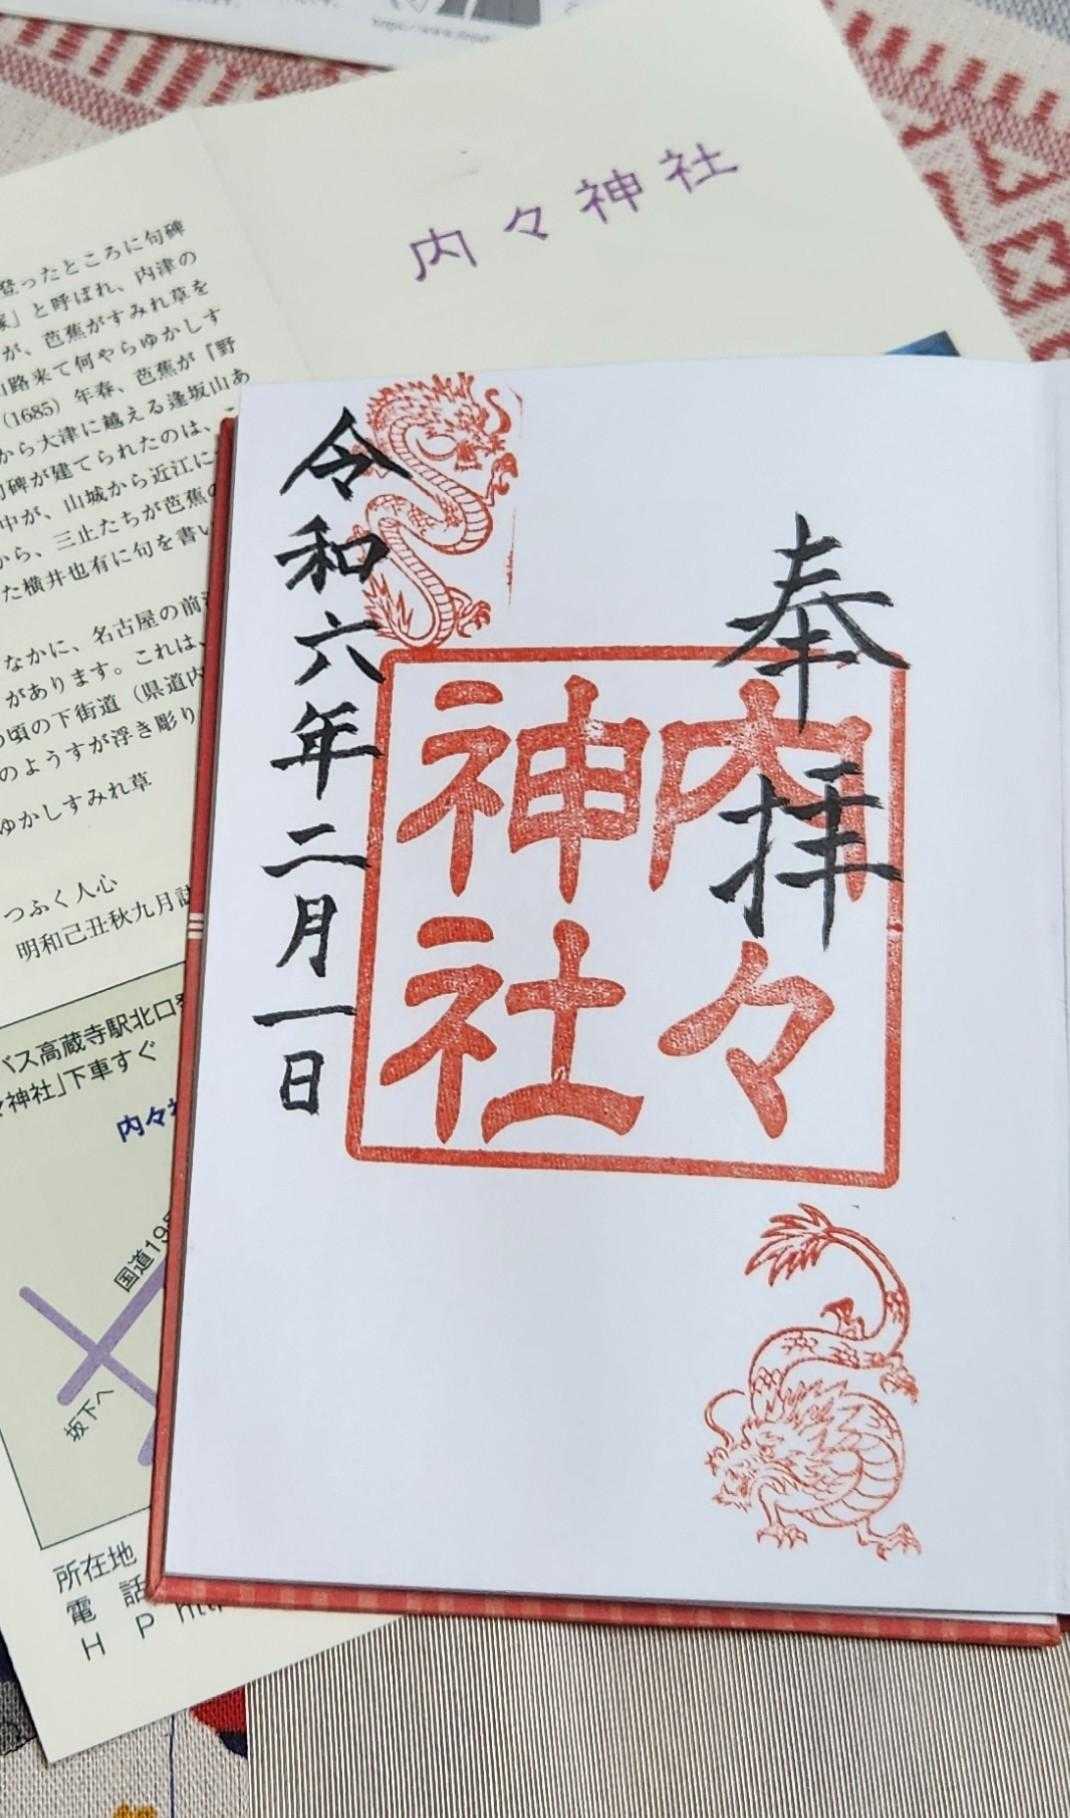 内々神社
登ったところに句碑
」と呼ばれ、内津の
が、芭蕉がすみれ草を
山路来て何やらゆかしす
(1685) 年春、芭蕉が「野
から大津に越える逢坂山あ
句碑が建てられたのは、
中が、山城から近江に
から、三止たちが芭蕉の
た横井也有に句を書い
なかに、名古屋の前
があります。これは、
の頃の下街道（県道内
のようすが浮き彫り
ゆかしすみれ草
つふく人心
明和己丑秋九月
バス高蔵寺駅北口
神社」下車すぐ
内々
国道19
坂下へ
所在地
電話
HP htt
奉拝
内々
神社
令和六年二月一日